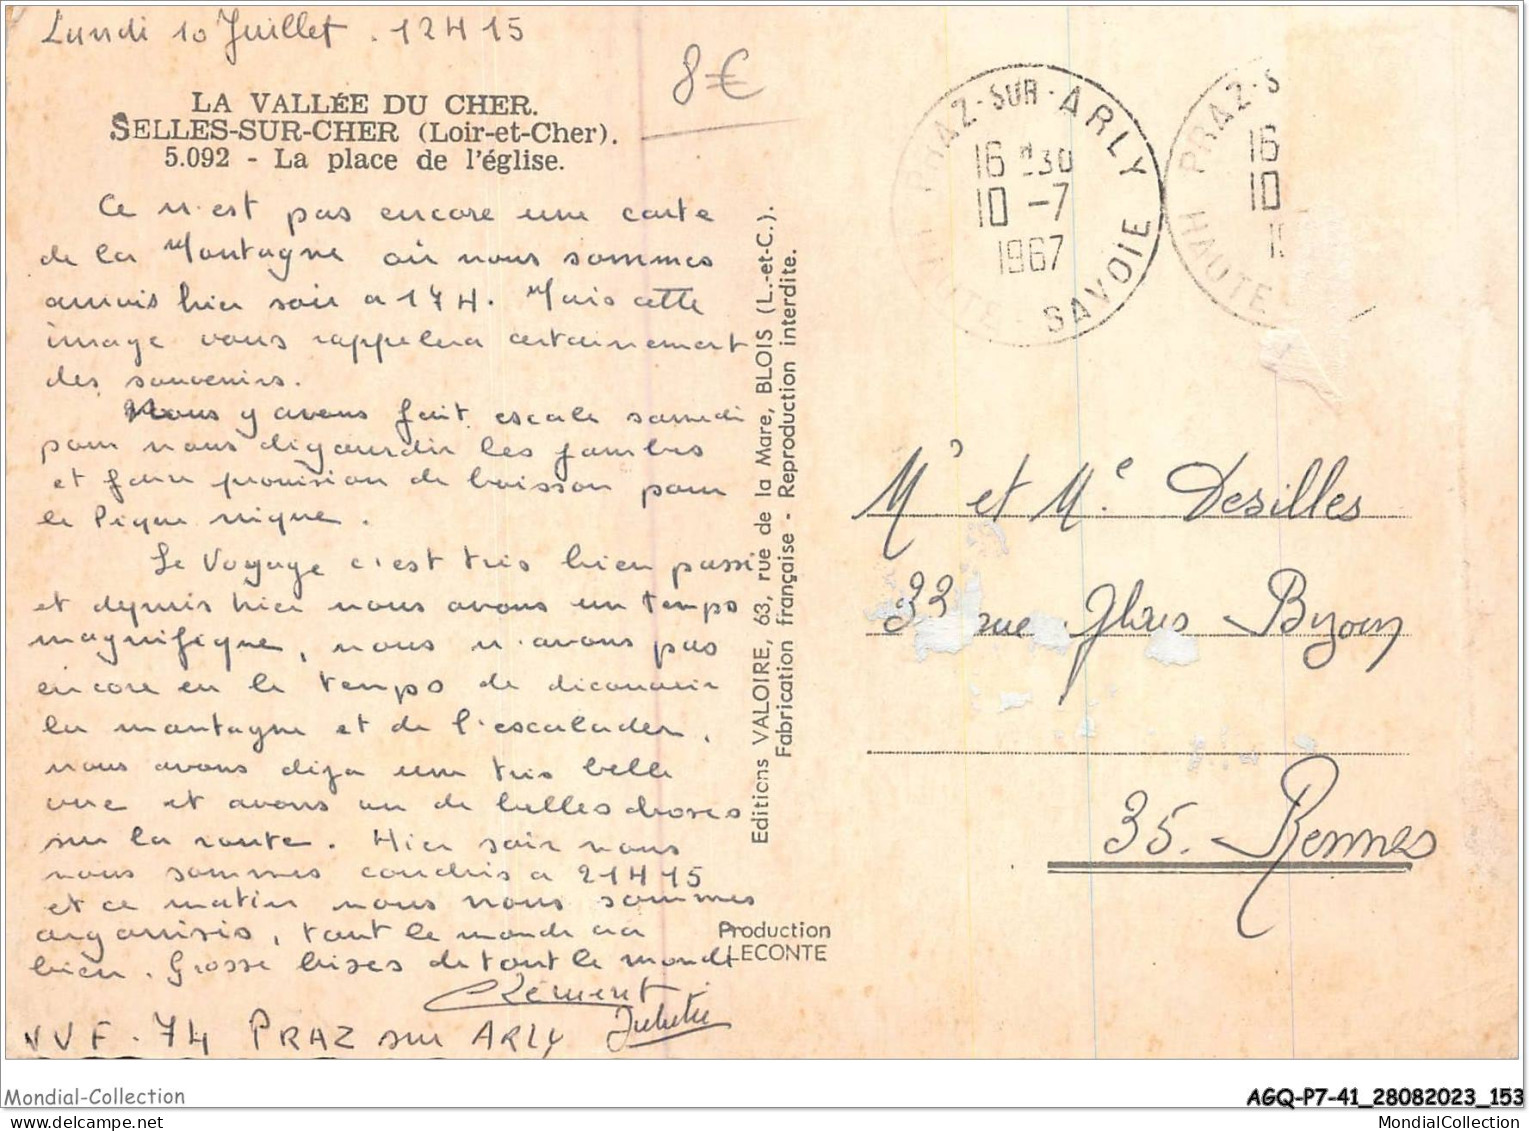 Lundi 10 Juillet . 12H15
8€
LA VALLÉE DU CHER.
SELLES-SUR-CHER (Loir-et-Cher).
5.092 - La place de l'église.
Ce n'est pas encore une carte
de la Montagne où nous sommes
arrivés hier soir à 17H. Mais cette
image vous rappelera certainement
des souvenirs.
Nous y avons fait escale samedi
pour nous dégourdir les jambes
et faire provision de boisson pour
le Pique nique.
Le Voyage c'est très bien passé
et depuis hier nous avons un temps
magnifique, nous n'avons pas
encore eu le temps de découvrir
la montagne et de l'escalader,
nous avons déjà une très belle
vue et avons vu de belles choses
sur la route. Hier soir nous
nous sommes couchés à 21H15
et ce matin nous nous sommes
organisés, tout le monde va
bien. Grosse bises de tout le monde
Clément
Juliette
VVF - 74 PRAZ sur ARLY
Editions VALOIRE, 63, rue de la Mare, BLOIS (L.-et-C.).
Fabrication française - Reproduction interdite.
Production
LECONTE
PRAZ-SUR-ARLY
16 H30
10 -7
1967
HAUTE-SAVOIE
PRAZ-S
16
10
19
HAUTE
Mr et Me Desilles
33 rue Jules
35. Rennes
Mondial-Collection
AGQ-P7-41_28082023_153
MondialCollection